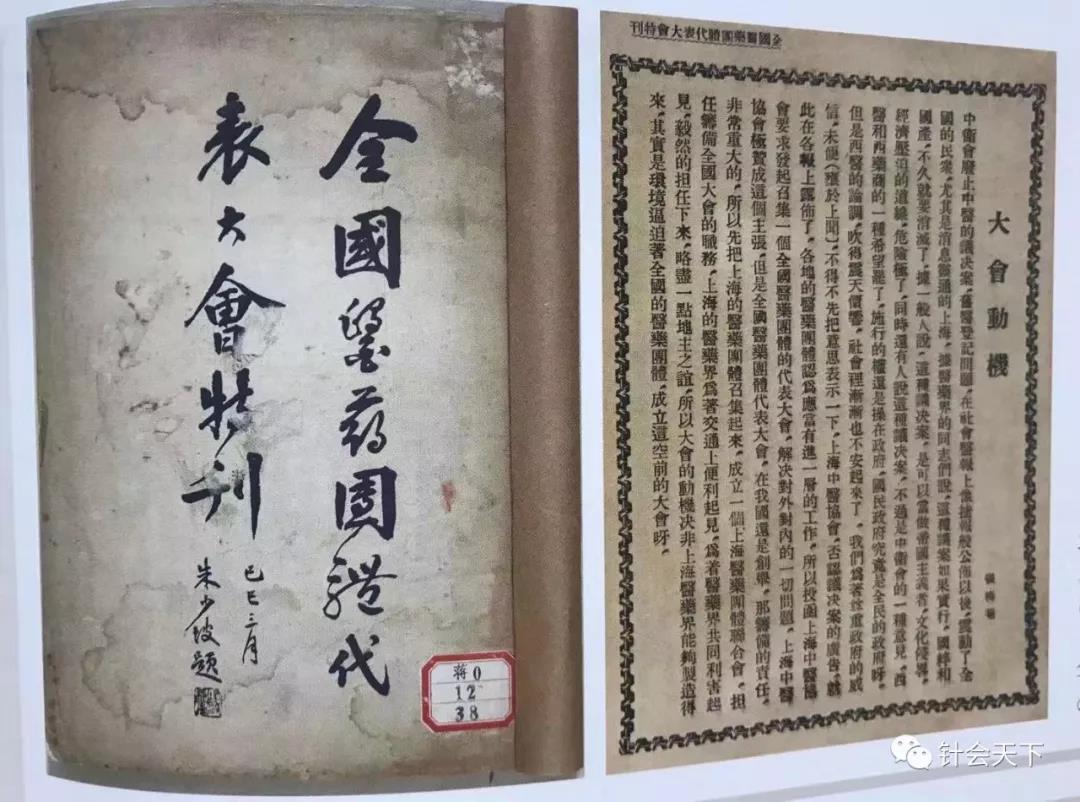 全國醫药團體代
表大會特刊
己巳三月
朱少坡題
蒋0
12
38
全國醫藥團體代表大會特刊
大會動機
中衛會廢止中醫的議决案，舊醫登記問題，在社會醫報上像捷報般公佈以後，震動了全
國的民衆，尤其是消息靈通的上海，據醫藥界的同志們說，這種議案如果實行，國粹和
國產，不久就要消滅了，據一般人說，這種議决案，是可以當做帝國主義者，文化侵畧，
經濟壓迫的導綫，危險極了，同時還有人說這種議决案，不過是中衛會的一種意見，西
醫和西藥商的一種希望罷了，施行的權還是操在政府，國民政府究竟是全民的政府呀，
但是西醫的論調，吹得震天價響，社會裡漸漸也不安起來了，我們爲著尊重政府的威
信，未便（壅於上聞），不得不先把意思表示一下，上海中醫協會，否認議决案的廣告，就
此在各報上露佈了，各地的醫藥團體認爲應當有進一層的工作，所以投函上海中醫協
會要求發起召集一個全國醫藥團體的代表大會，解决對外對内的一切問題，上海中醫
協會極贊成這個主張，但是全國醫藥團體代表大會，在我國還是創舉，那籌備的責任，
非常重大的，所以先把上海的醫藥團體召集起來，成立一個上海醫藥團體聯合會，担
任籌備全國大會的職務，上海的醫藥界爲著交通上便利起見，爲着醫藥界共同利害起
見，毅然的担任下來，略盡一點地主之誼，所以大會的動機决非上海醫藥界能夠製造得
來，其實是環境逼迫著全國的醫藥團體，成立這空前的大會呀。
针会天下